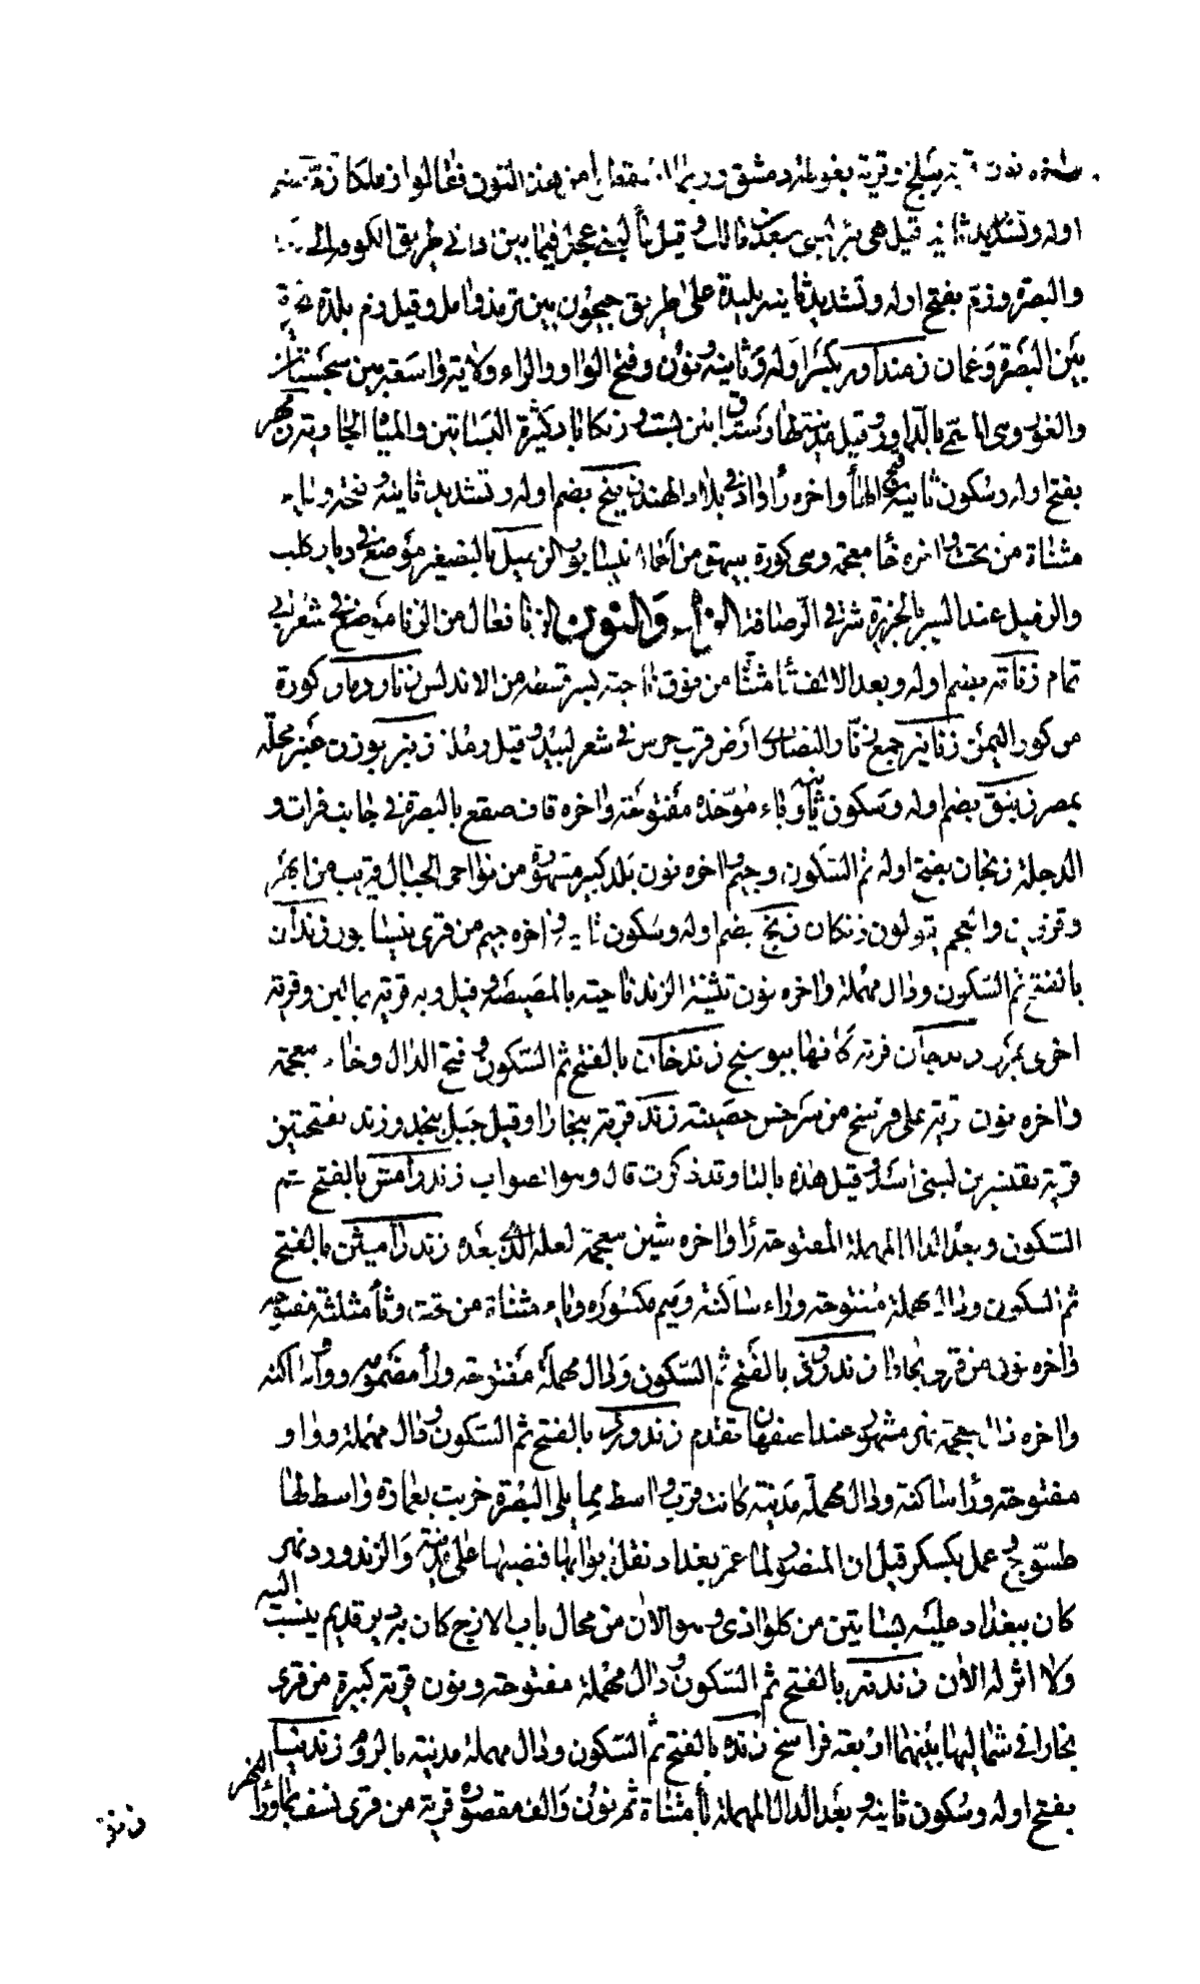 واخره نون قرية ببلخ وقرية بغوطة دمشق وربما اسقطوا من هذه النون فقالوا زملكا زم بفتح
اوله وتشديد ثانيه قيل هي بئر لبني سعد بن مالك وقيل ماء لبني عجل فيما بين اداني طريق الكوفة الى
والبصرة وزم بفتح اوله وتشديد ثانيه بليدة على طريق جيحون بين ترمذ وامل وقيل زم بلدة
بين البصرة وعمان زمنداور بكسر اوله وثانيه ونون وفتح الواو والراء ولاية واسعة بين سجستان
والغور وهي المسماة بالداور وقيل مدينتها رستاق بين بست وزكاباد كثيرة البساتين والمياه الجارية زمهر
بفتح اوله وسكون ثانيه وفتح الهاء واخره راء واد في بلاد الهند زميخ بضم اوله وتشديد ثانيه وفتحه وياء
مثناة من تحت واخره خاء معجمة وهي كورة بيهق من اعمال نيسابور الزميل بالتصغير موضع في ديار كلب
والزميل عند البسر بالجزيرة شرقي الرصافة الزاء والنون الزنا فعال من الزنا موضع في شعر ابي
تمام زناتة بضم اوله وبعد الالف تاء مثناة من فوق ناحية بسرقسطة من الاندلس زنار ذمار كورة
من كور اليمن زنانير جمع زنار النصارى ارض قرب جرش في شعر لبيد وقيل رمل زنبر بوزن عنبر محلة
بمصر زنبق بضم اوله وسكون ثانيه وباء موحدة مفتوحة واخره قاف صقع بالبصرة في جانب فرات و
الدجلة زنجان بفتح اوله ثم السكون وجيم واخره نون بلد كبير مشهور من نواحي الجبال قريب من ابهر
وقزوين والعجم يقولون زنكان زنج بضم اوله وسكون ثانيه واخره جيم من قرى نيسابور زندان
بالفتح ثم السكون ودال مهملة واخره نون تثنية الزند ناحية بالمصيصة وقيل وبه قرية بمالين وقرية
اخرى بمرو زندجان قرية كانها ببوسنج زندخان بالفتح ثم السكون وفتح الدال وخاء معجمة
واخره نون قرية على فرسخ من سرخس حصينة زند قرية ببخارا وقيل جبل بنجد وزند بفتحتين
قرية بقنسرين لبني اسد وقيل هذه بالتا وقد ذكرت قال وهو الصواب زندرامش بالفتح ثم
السكون وبعد الدال المهملة المفتوحة راء واخره شين معجمة لعله الذي بعده زندرميثن بالفتح
ثم السكون ودال مهملة مفتوحة وراء ساكنة وميم مكسورة وياء مثناة من تحت وثاء مثلثة مفتوحة
واخره نون من قرى بخارا زندروذ بالفتح ثم السكون ودال مهملة مفتوحة وراء مضمومة وواو ساكنة
واخره ذال معجمة نهر مشهور عند اصفهان تقدم زندورد بالفتح ثم السكون ودال مهملة وواو
مفتوحة وراء ساكنة ودال مهملة مدينة كانت قرب واسط مما يلي البصرة خربت بعمارة واسط لها
طسوج عمل بكسكر قيل ان المنصور لما عمر بغداد نقل ابوابها فنصبها على مدينته والزندورد نهر
كان ببغداد عليه بساتين من كلواذى وهو الان من محال باب الازج كان به دير قديم ينسب اليه
ولا اثر له الان زندنة بالفتح ثم السكون ودال مهملة مفتوحة ونون قرية كبيرة من قرى
بخارا في شماليها بينهما اربعة فراسخ زنده بالفتح ثم السكون ودال مهملة مدينة بالروم زندينا
بفتح اوله وسكون ثانيه وبعد الدال المهملة ياء مثناة ثم نون والف مقصورة قرية من قرى نسف بما وراء النهر